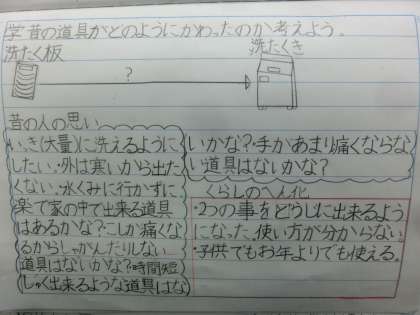 学 昔の道具がどのようにかわったのか考えよう。
洗たく板
洗たくき
?
昔の人の思い
いっき(大量)に洗えるように
したい・外は寒いから出た
くない・水くみに行かずに
楽で家の中で出来る道具
はあるかな?・こしが痛くな
るからしゃがんだりしない
道具はないかな?・時間短
(しゅく出来るような道具はな
いかな?・手があまり痛くならな
い道具はないかな?
くらしのへん化
・2つの事をどうじに出来るよう
になった。使い方が分からない。
・子供でもお年よりでも使える。